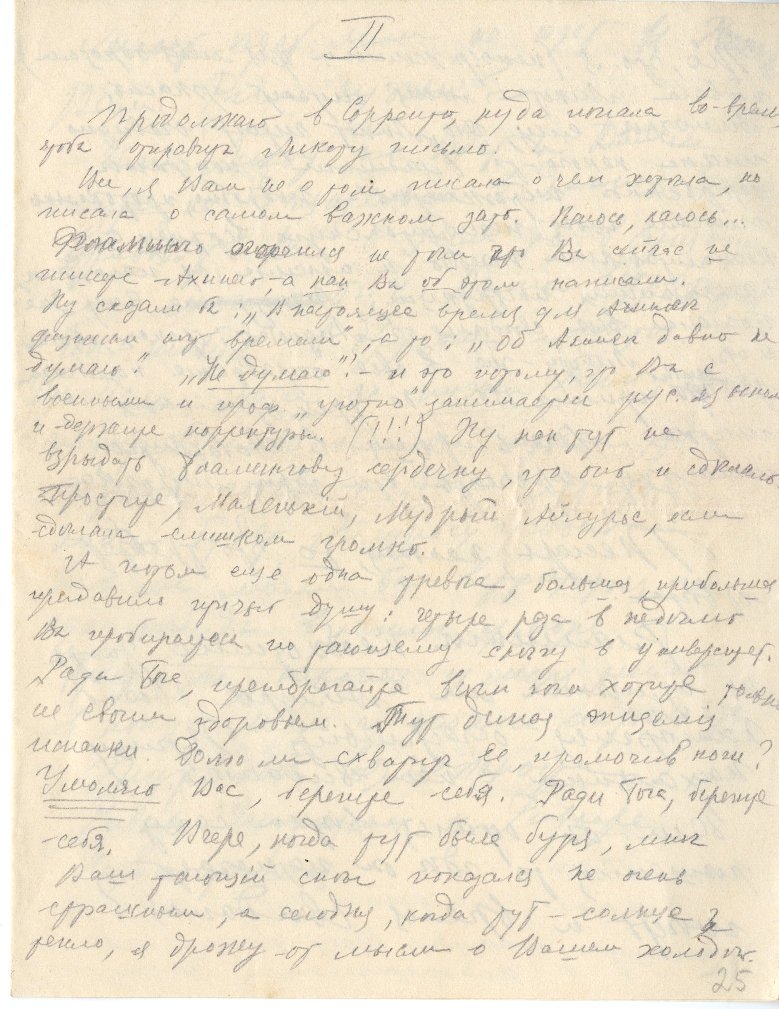 II
Продолжаю в Сорренто, куда попала во-время
чтобы отправить письмо.
я Вам не о том писала о чем хотела, но
писала о самом важном зато. Каюсь, каюсь...
Фламинго огорчился не тем что Вы сейчас не
пишете Ахинею, а как Вы об этом написали.
Ну сказали бы: „В настоящее время для Ахинеи
физически нет времени“, а то: „Об Ахинее давно не
думаю“. „Не думаю“! – и это потому, что Вы с
военными и проф. „уютно“ занимаетесь рус. языком
и держите корректуры. (!!!) Ну как тут не
взрыдать Фламинговому сердечку, что оно и сделало
Простите, Маленький, Мудрый Айлурос, если
сделала слишком громко.
А потом еще одна тревога, большая пребольшая
придавила птичью душу: четыре раза в неделю
Вы пробираетесь по тающему снегу в университет.
Ради Бога, пренебрегайте всем чем хотите только
не своим здоровьем. Тут дикая эпидемия
испанки. Долго ли схватить ее, промочив ноги?
Умоляю Вас, берегите себя. Ради Бога, берегите
себя. Вчера, когда тут была буря, мне
Ваш тающий снег показался не очень
страшным, а сегодня, когда тут – солнце и
тепло, я дрожу от мысли о Вашем холоде.
25